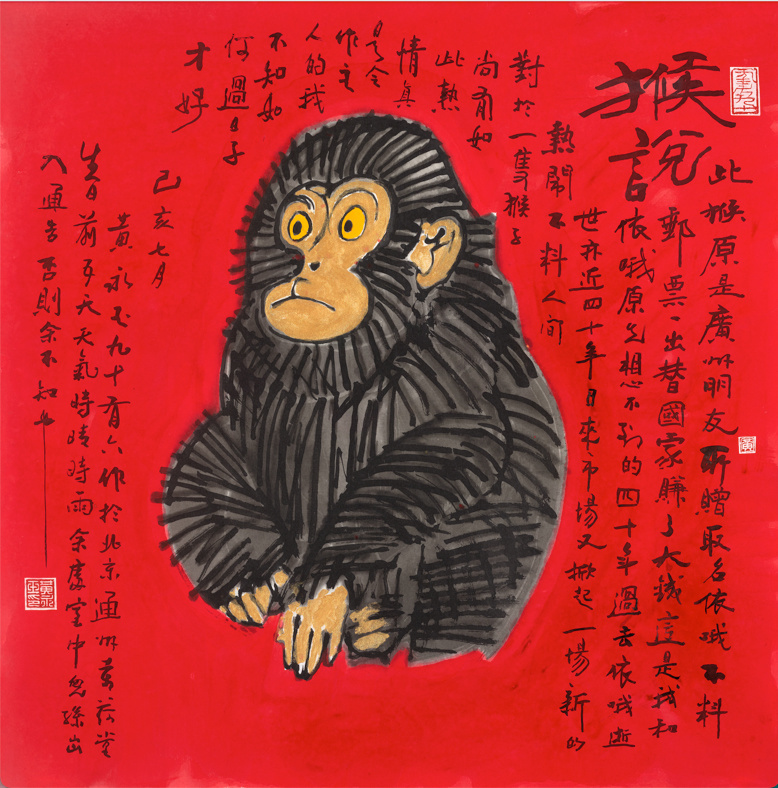 猴說
此猴原是廣州朋友所贈取名依哦不料
郵票一出替國家賺了大錢這是我和
依哦原先想不到的四十年過去依哦逝
世亦近四十年日來市場又掀起一場新的
熱鬧不料人間
對於一隻猴子
尚有如
此熱
情真
是令
作主
人的我
不知如
何過日子
才好
己亥七月
黃永玉九十有六作於北京通州萬荷堂
生日前五天天氣時晴時雨余處室中兒孫出
入通告否則余不知也
黃
黃永玉印